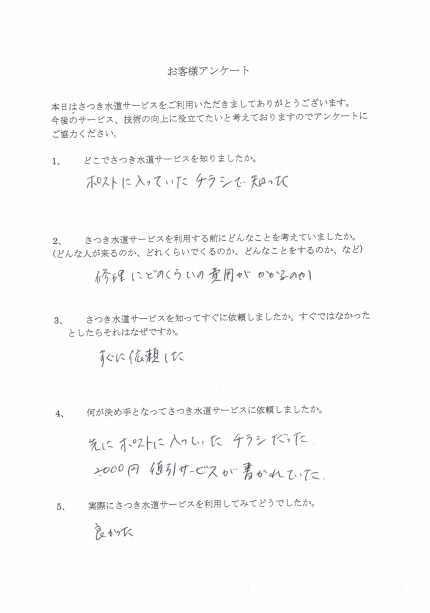 お客様アンケート
本日はさつき水道サービスをご利用いただきましてありがとうございます。
今後のサービス、技術の向上に役立てたいと考えておりますのでアンケートに
ご協力ください。
1、 どこでさつき水道サービスを知りましたか。
ポストに入っていたチラシで知った
2、 さつき水道サービスを利用する前にどんなことを考えていましたか。
(どんな人が来るのか、どれくらいでくるのか、どんなことをするのか、など)
修理にどのくらいの費用がかかるのか
3、 さつき水道サービスを知ってすぐに依頼しましたか。すぐではなかった
としたらそれはなぜですか。
すぐに依頼した
4、 何が決め手となってさつき水道サービスに依頼しましたか。
先にポストに入っていたチラシだった.
2000円値引サービスが書かれていた.
5、 実際にさつき水道サービスを利用してみてどうでしたか。
良かった